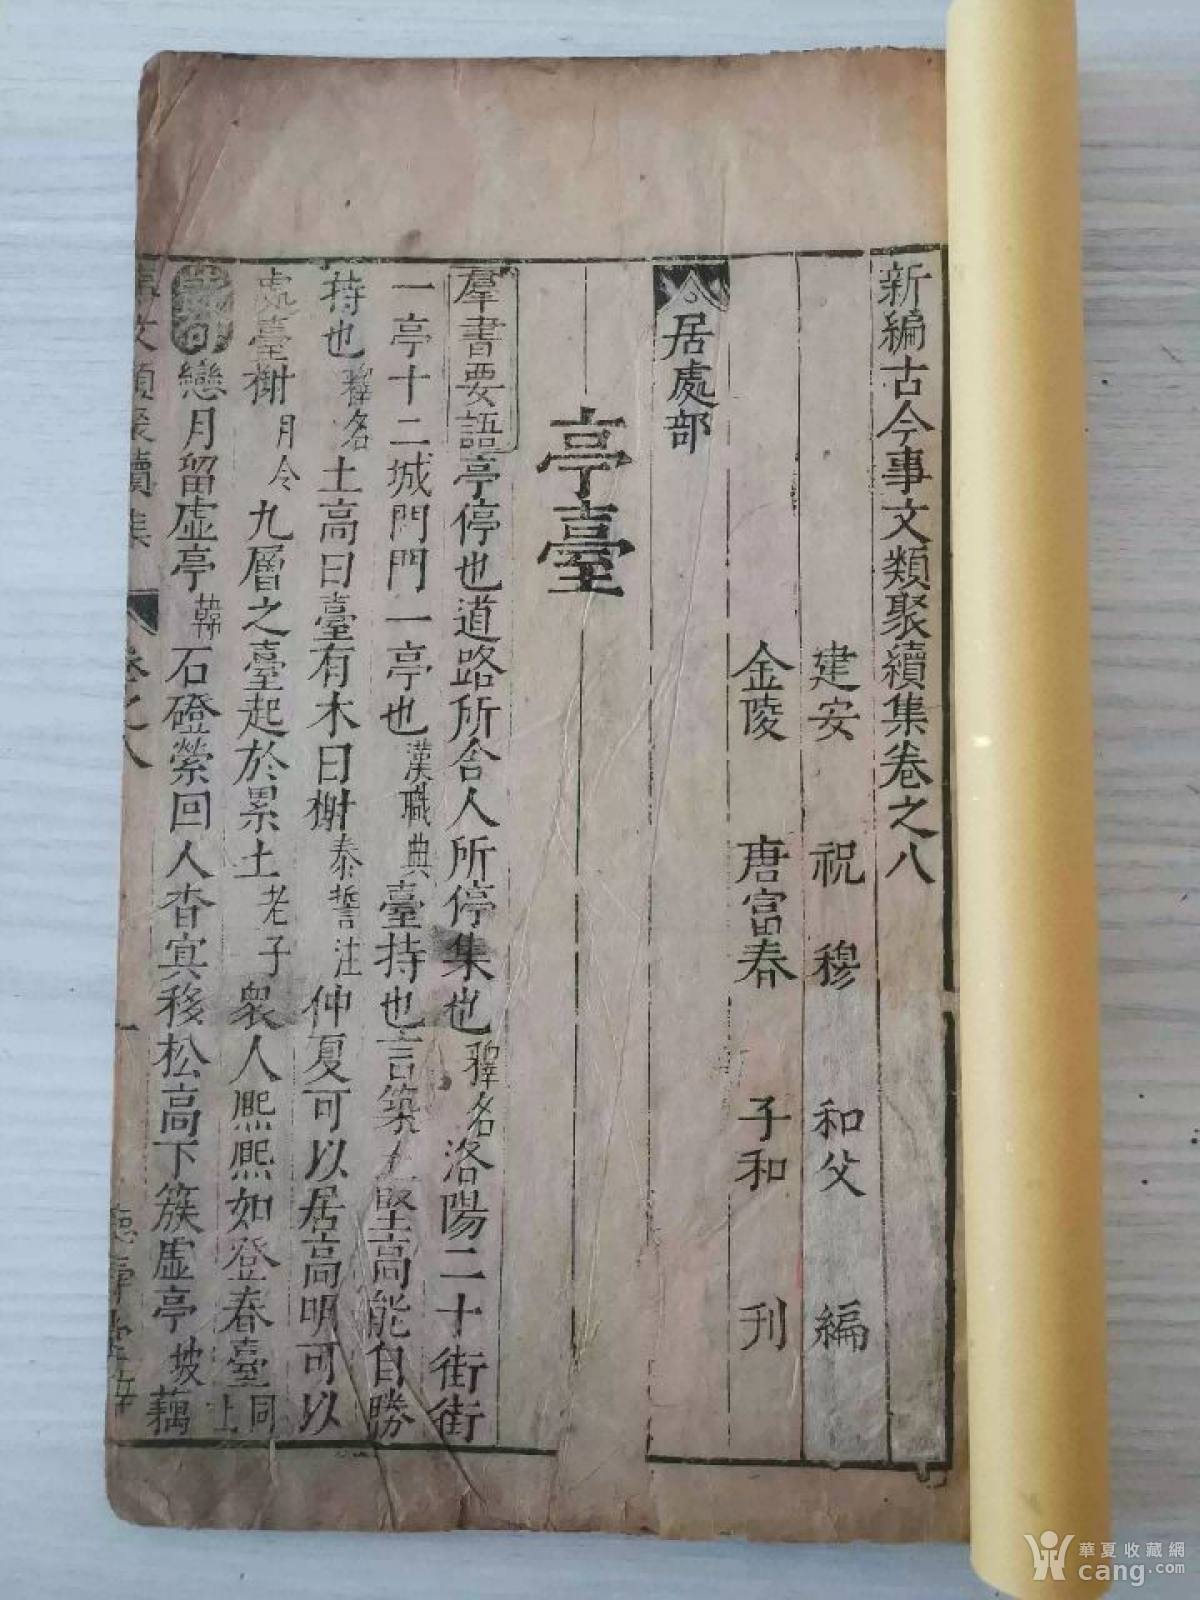 新編古今事文類聚續集卷之八
建安 祝穆 和父 編
金陵 唐富春 子和 刊
居處部
亭臺
羣書要語亭停也道路所舍人所停集也釋名洛陽二十街街
一亭十二城門門一亭也漢職典臺持也言築土堅高能自勝
持也釋名土高曰臺有木曰榭泰誓注仲夏可以居高明可以
處臺榭月令九層之臺起於累土老子衆人熙熙如登春臺同上
戀月留虛亭韓石磴縈回人杳冥移松高下簇虛亭坡藕
事文類聚續集 卷之八 一
華夏收藏網
cang.com